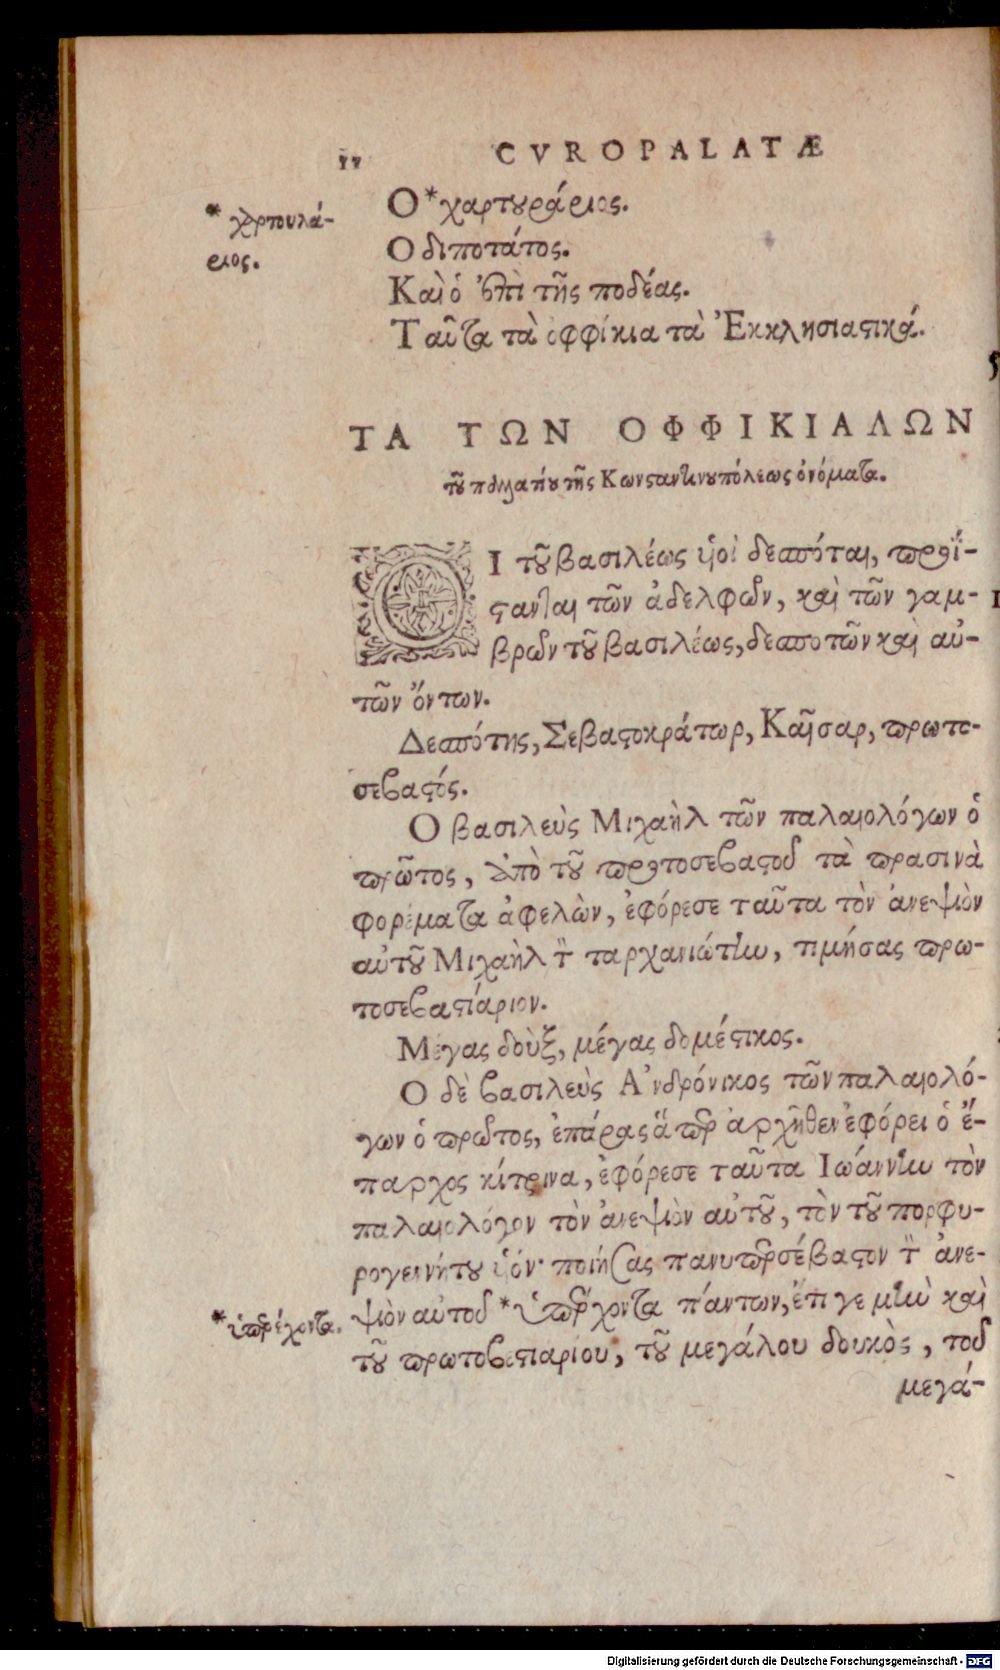 CVROPALATÆ
Ο *χαρτουράριος.
* χαρτουλά-
ριος.
Ο διποτάτος.
Καὶ ὁ ἐπὶ τῆς ποδέας.
Ταῦτα τὰ ὀφφίκια τὰ Ἐκκλησιαστικά.
ΤΑ ΤΩΝ ΟΦΦΙΚΙΑΛΩΝ
τοῦ παλατίου τῆς Κωνσταντινουπόλεως ὀνόματα.
ΟΙ τοῦ βασιλέως υἱοὶ δεσπόται, προΐ-
στανται τῶν ἀδελφῶν, καὶ τῶν γαμ-
βρῶν τοῦ βασιλέως, δεσποτῶν καὶ αὐ-
τῶν ὄντων.
Δεσπότης, Σεβαστοκράτωρ, Καῖσαρ, πρωτο-
σεβαστός.
Ο βασιλεὺς Μιχαὴλ τῶν παλαιολόγων ὁ
πρῶτος, ἀπὸ τοῦ πρωτοσεβαστοῦ τὰ πρασινὰ
φορέματα ἀφελὼν, ἐφόρεσε ταῦτα τὸν ἀνεψιὸν
αὐτοῦ Μιχαὴλ τὸν ταρχανιώτην, τιμήσας πρω-
τοσεβαστιάριον.
Μέγας δοὺξ, μέγας δομέστικος.
Ο δὲ βασιλεὺς Ἀνδρόνικος τῶν παλαιολό-
γων ὁ πρῶτος, ἐπάρας ἅπερ ἀρχῆθεν ἐφόρει ὁ ἔ-
παρχος κίτρινα, ἐφόρεσε ταῦτα Ιωάννην τὸν
παλαιολόγον τὸν ἀνεψιὸν αὐτοῦ, τὸν τοῦ πορφυ-
ρογεννήτου υἱόν· ποιήσας πανυπερσέβαστον τὸν ἀνε-
ψιὸν αὐτοῦ *ὑπάρχοντα πάντων, ἔτι γε μὴν καὶ
* ὑπερέχοντα.
τοῦ πρωτοβεστιαρίου, τοῦ μεγάλου δουκὸς, τοῦ
μεγά-
Digitalisierung gefördert durch die Deutsche Forschungsgemeinschaft - DFG